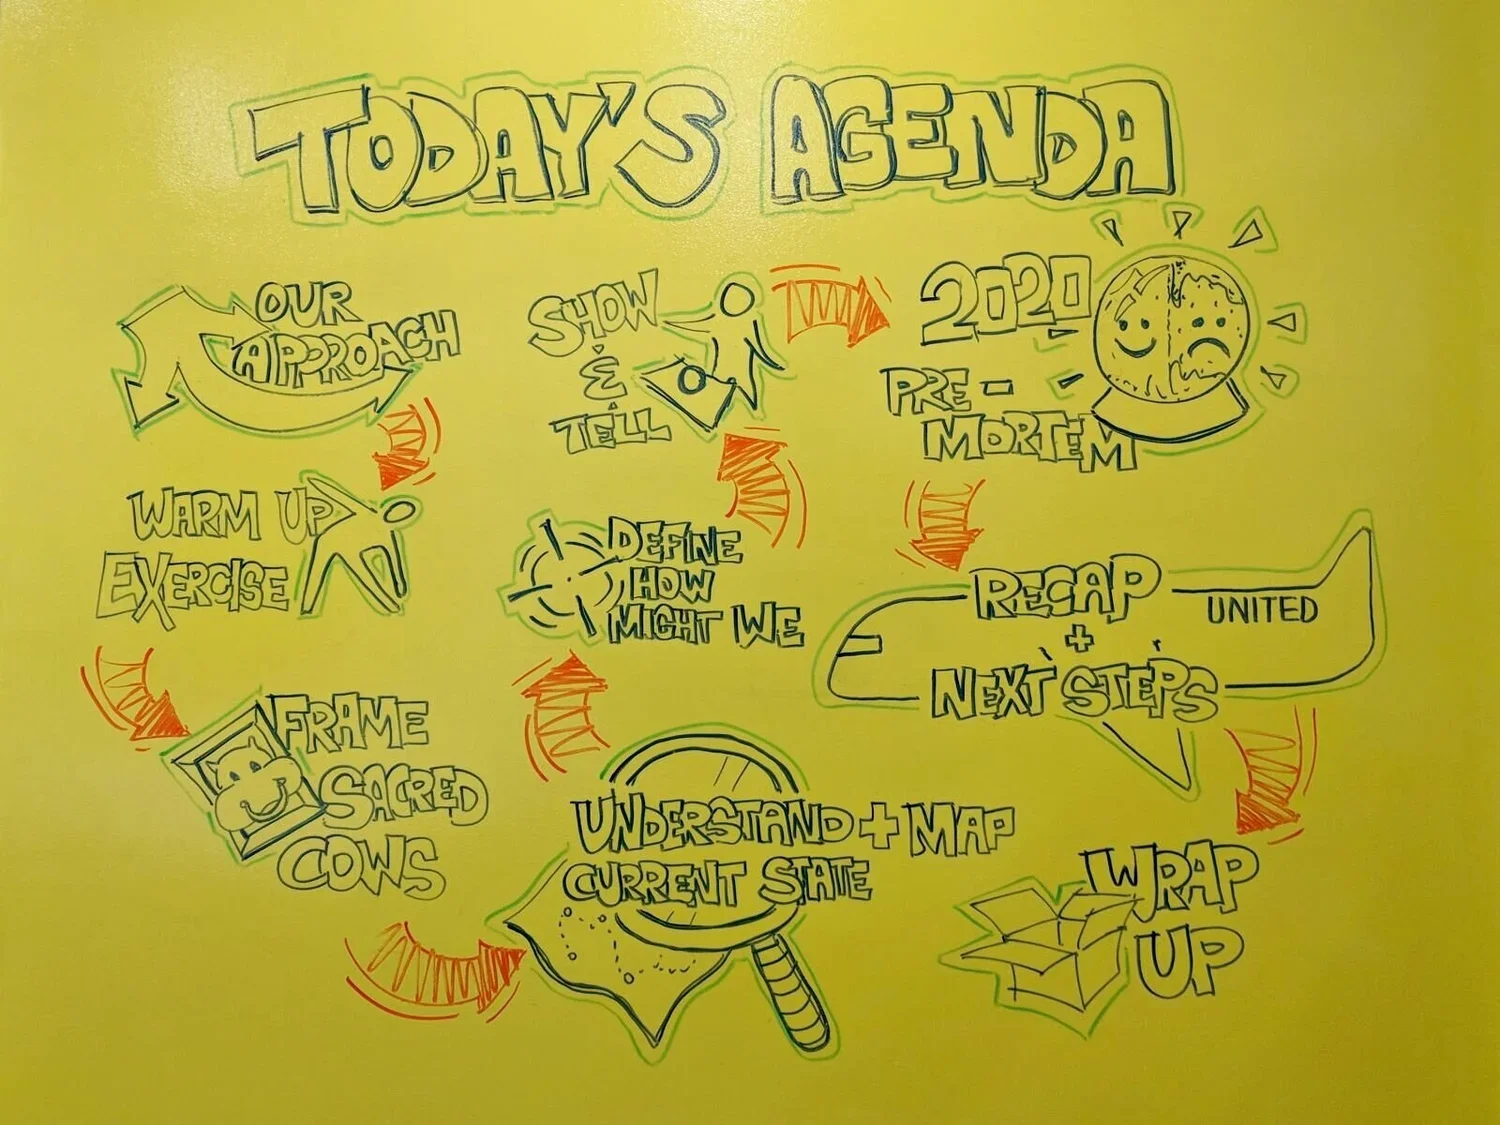 TODAY'S AGENDA
OUR
APPROACH
WARM UP
EXERCISE
FRAME
SACRED
COWS
UNDERSTAND + MAP
CURRENT STATE
DEFINE
HOW
MIGHT WE
SHOW
&
TELL
2020
PRE-
MORTEM
RECAP
+
NEXT STEPS
UNITED
WRAP
UP